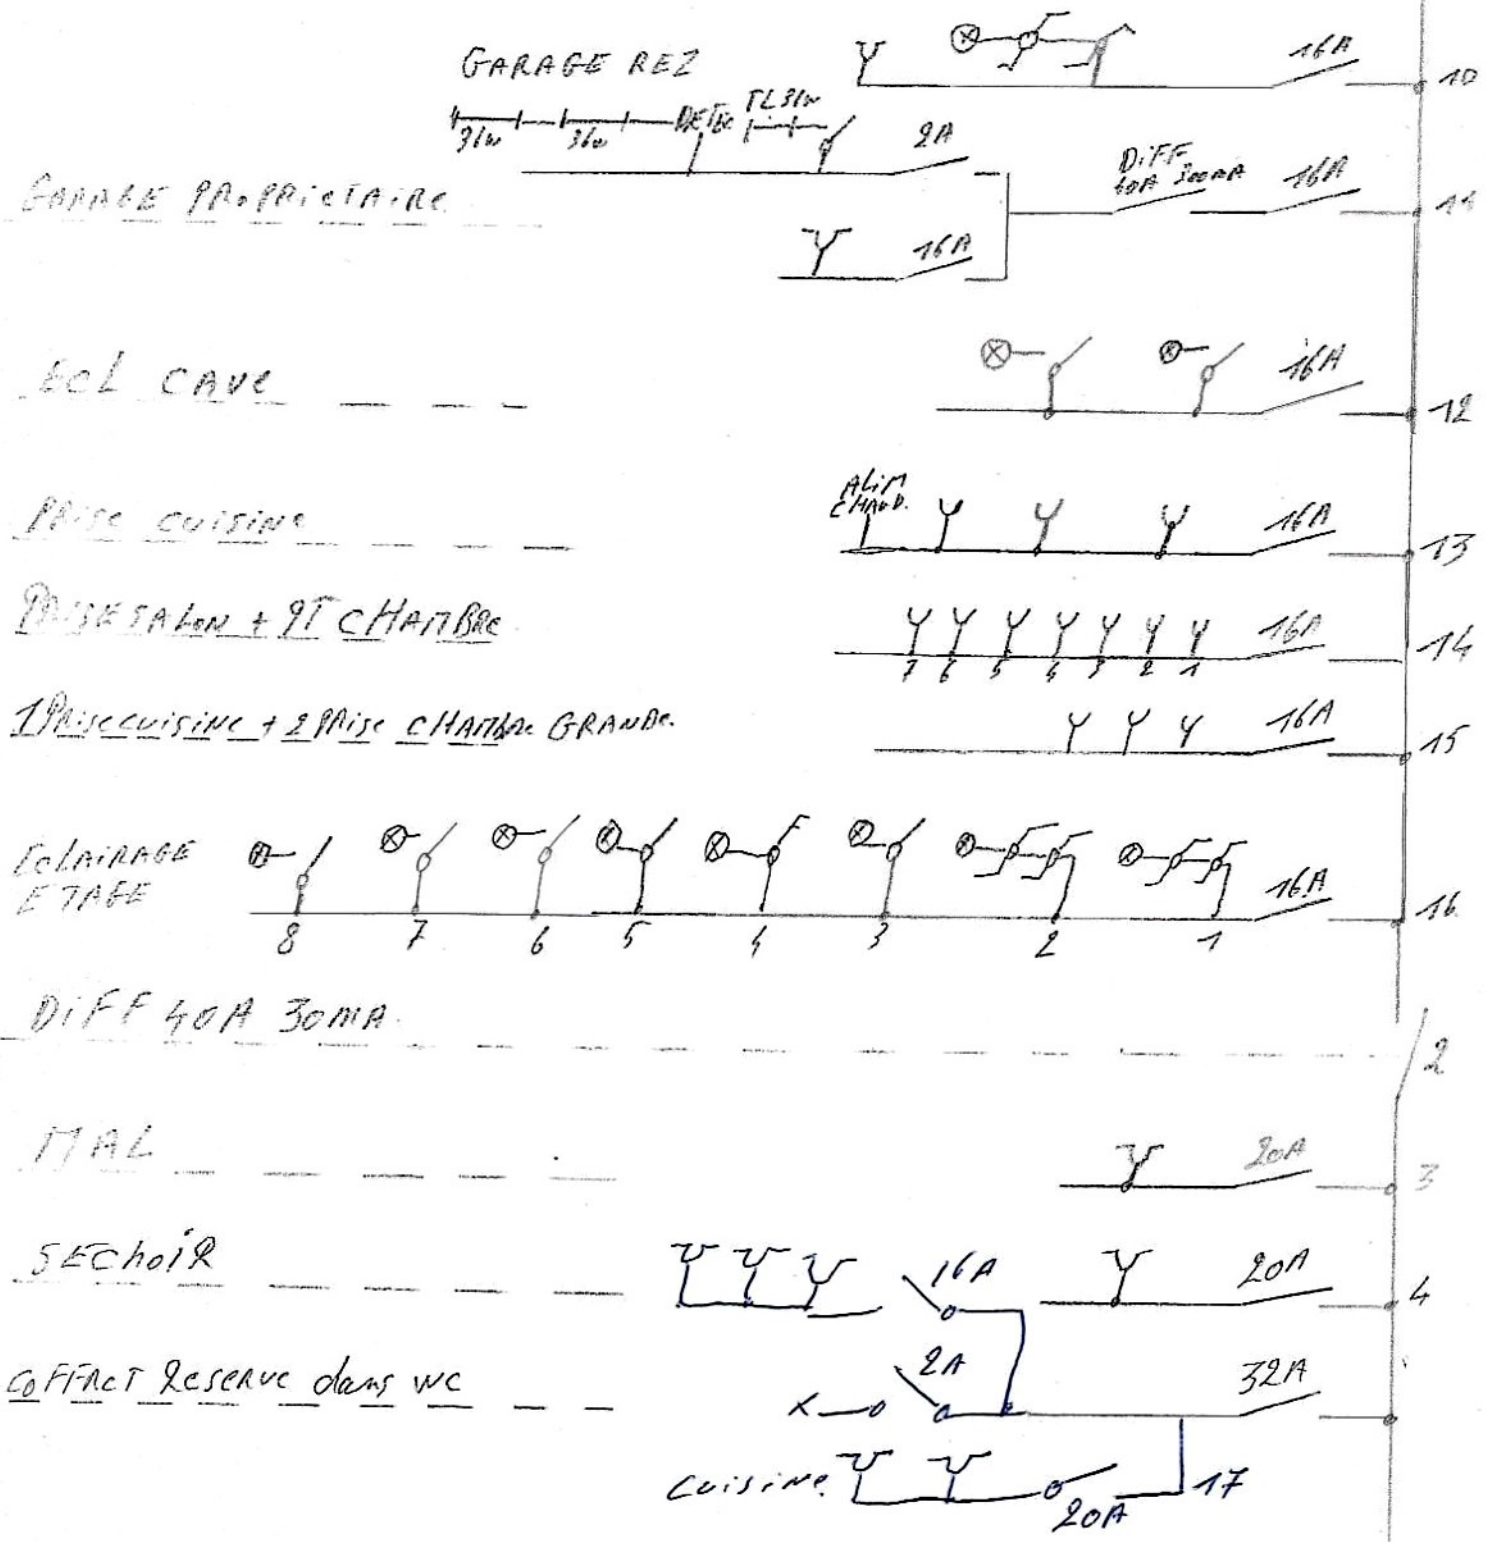 GARAGE REZ
16A
10
31w 36w DETEC. TL 31w
2A
GARAGE PROPRIETAIRE
DIFF
40A 300MA 16A 11
16A
ECL CAVE
16A 12
ALIM
CHAUD.
PRISE CUISINE
16A 13
PRISE SALON + PT CHAMBRE
16A 14
7 6 5 4 3 2 1
1 PRISE CUISINE + 2 PRISE CHAMBRE GRANDE.
16A 15
ECLAIRAGE
ETAGE
16A 16
8 7 6 5 4 3 2 1
DIFF 40A 30MA.
2
MAL
20A 3
SEChoiR
16A 20A 4
COFFRET RESERVE dans WC
2A 32A
CUISINE. 20A 17